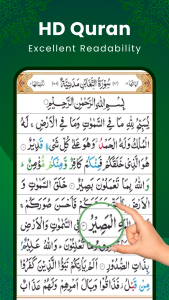 HD Quran
Excellent Readability
سُورَةُ التَّغَابُنِ مَدَنِيَّةٌ
بِسْمِ اللّٰهِ الرَّحْمٰنِ الرَّحِيْمِ
يُسَبِّحُ لِلّٰهِ مَا فِي السَّمٰوٰتِ وَمَا فِي الْاَرْضِ ۚ لَهُ
الْمُلْكُ وَلَهُ الْحَمْدُ وَهُوَ عَلٰى كُلِّ شَيْءٍ قَدِيْرٌ
هُوَ الَّذِيْ خَلَقَكُمْ فَمِنْكُمْ كَافِرٌ وَّمِنْكُمْ مُّؤْمِنٌ ۭ
وَاللّٰهُ بِمَا تَعْمَلُوْنَ بَصِيْرٌ خَلَقَ السَّمٰوٰتِ وَ
الْاَرْضَ بِالْحَقِّ وَصَوَّرَكُمْ فَاَحْسَنَ صُوَرَكُمْ ۚ وَ
اِلَيْهِ الْمَصِيْرُ يَعْلَمُ مَا فِي السَّمٰوٰتِ وَالْاَرْضِ وَ
وَاللّٰهُ عَلِيْمٌۢ
بِذَاتِ الصُّدُوْرِ اَلَمْ يَاْتِكُمْ نَبَؤُا الَّذِيْنَ كَفَرُوْا
مِنْ قَبْلُ ۡ فَذَاقُوْا وَبَالَ اَمْرِهِمْ وَلَهُمْ